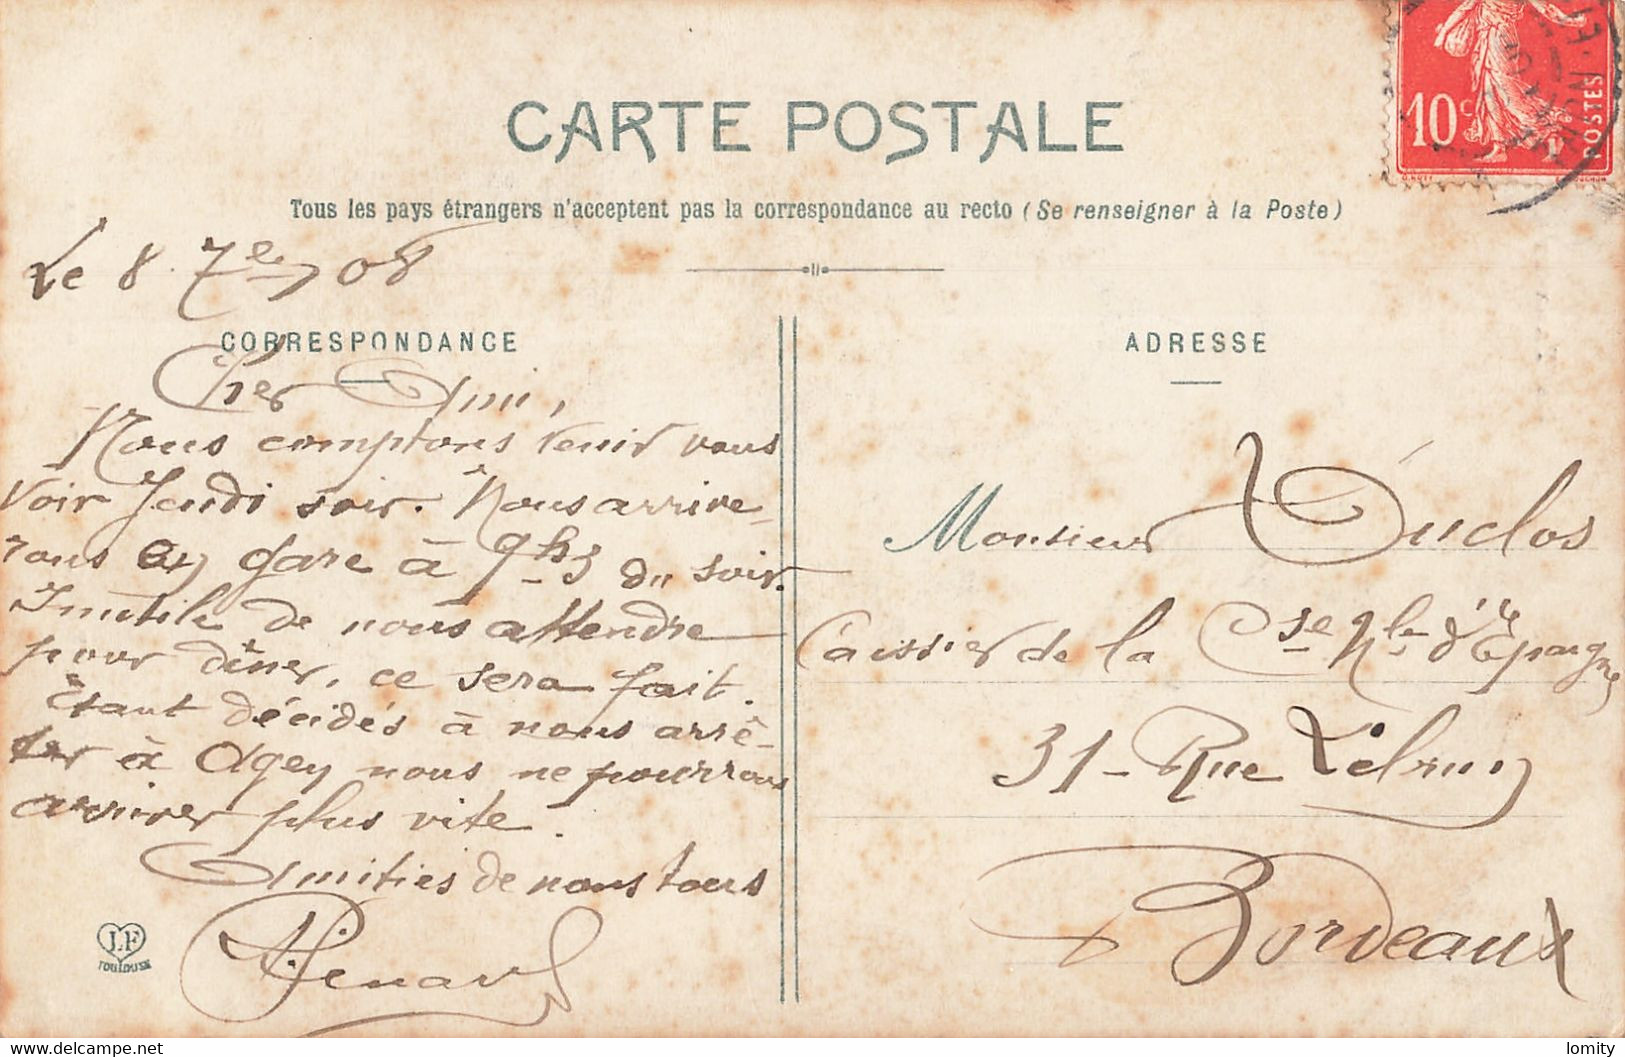 CARTE POSTALE
10c
POSTES
Tous les pays étrangers n'acceptent pas la correspondance au recto (Se renseigner à la Poste)
Le 8. 7bre 08
CORRESPONDANCE
Cher Ami,
Nous comptons venir vous
voir Jeudi soir. Nous arrive-
rons en gare à 9h3 du soir.
Inutile de nous attendre
pour dîner, ce sera fait.
Etant décidés à nous arrê-
ter à Agey nous ne pourrons
arriver plus vite.
Amitiés de nous tous
Pinard
J.F
TOULOUSE
ADRESSE
Monsieur Duclos
Caissier de la Cse Nle d'Epargne
31 - Rue
Bordeaux
www.delcampe.net
lomity